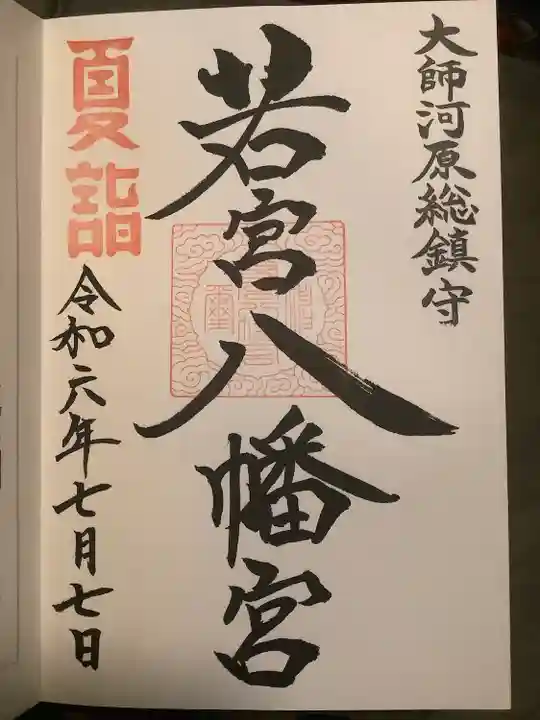 大師河原総鎮守
若宮八幡宮
夏詣
令和六年七月七日